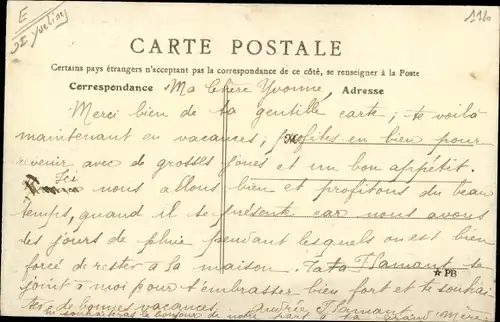 E
SI Yvelines
1120
CARTE POSTALE
Certains pays étrangers n'acceptant pas la correspondance de ce côté, se renseigner à la Poste
Correspondance Ma Chère Yvonne, Adresse
Merci bien de ta gentille carte; te voilà
maintenant en vacances; profites en bien pour
revenir avec de grosses joues et un bon appétit.
Ici nous allons bien et profitons du beau
temps, quand il se présente car nous avons
des jours de pluie pendant lesquels on est bien
forcé de rester à la maison. Tata Flamant se
★ PB
joint à moi pour t'embrasser bien fort et te souhai-
ter de bonnes vacances. Andrée Flamant
tu souhaiteras le bonjour de notre part à ta Grand'Mère